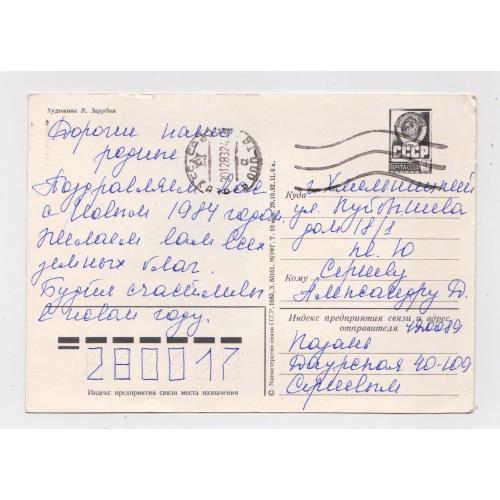 Художник В. Зарубин
Дорогие наши
родные
Поздравляем Вас
с Новым 1984 годом.
Желаем вам всех
земных благ.
Будьте счастливы
в новом году.
280017
Индекс предприятия связи места назначения
© Министерство связи СССР, 1982. З. 83161. МПФГ. Т. 10 29.10.82. Ц. 6 к.
СССР
Куда г. Хмельницкий
ул. Куйбышева
дом 18/1
кв. 10
Кому Сергееву
Александру В.
Индекс предприятия связи и адрес
отправителя 420089
Казань
Даурская 40-109
Сергеевым